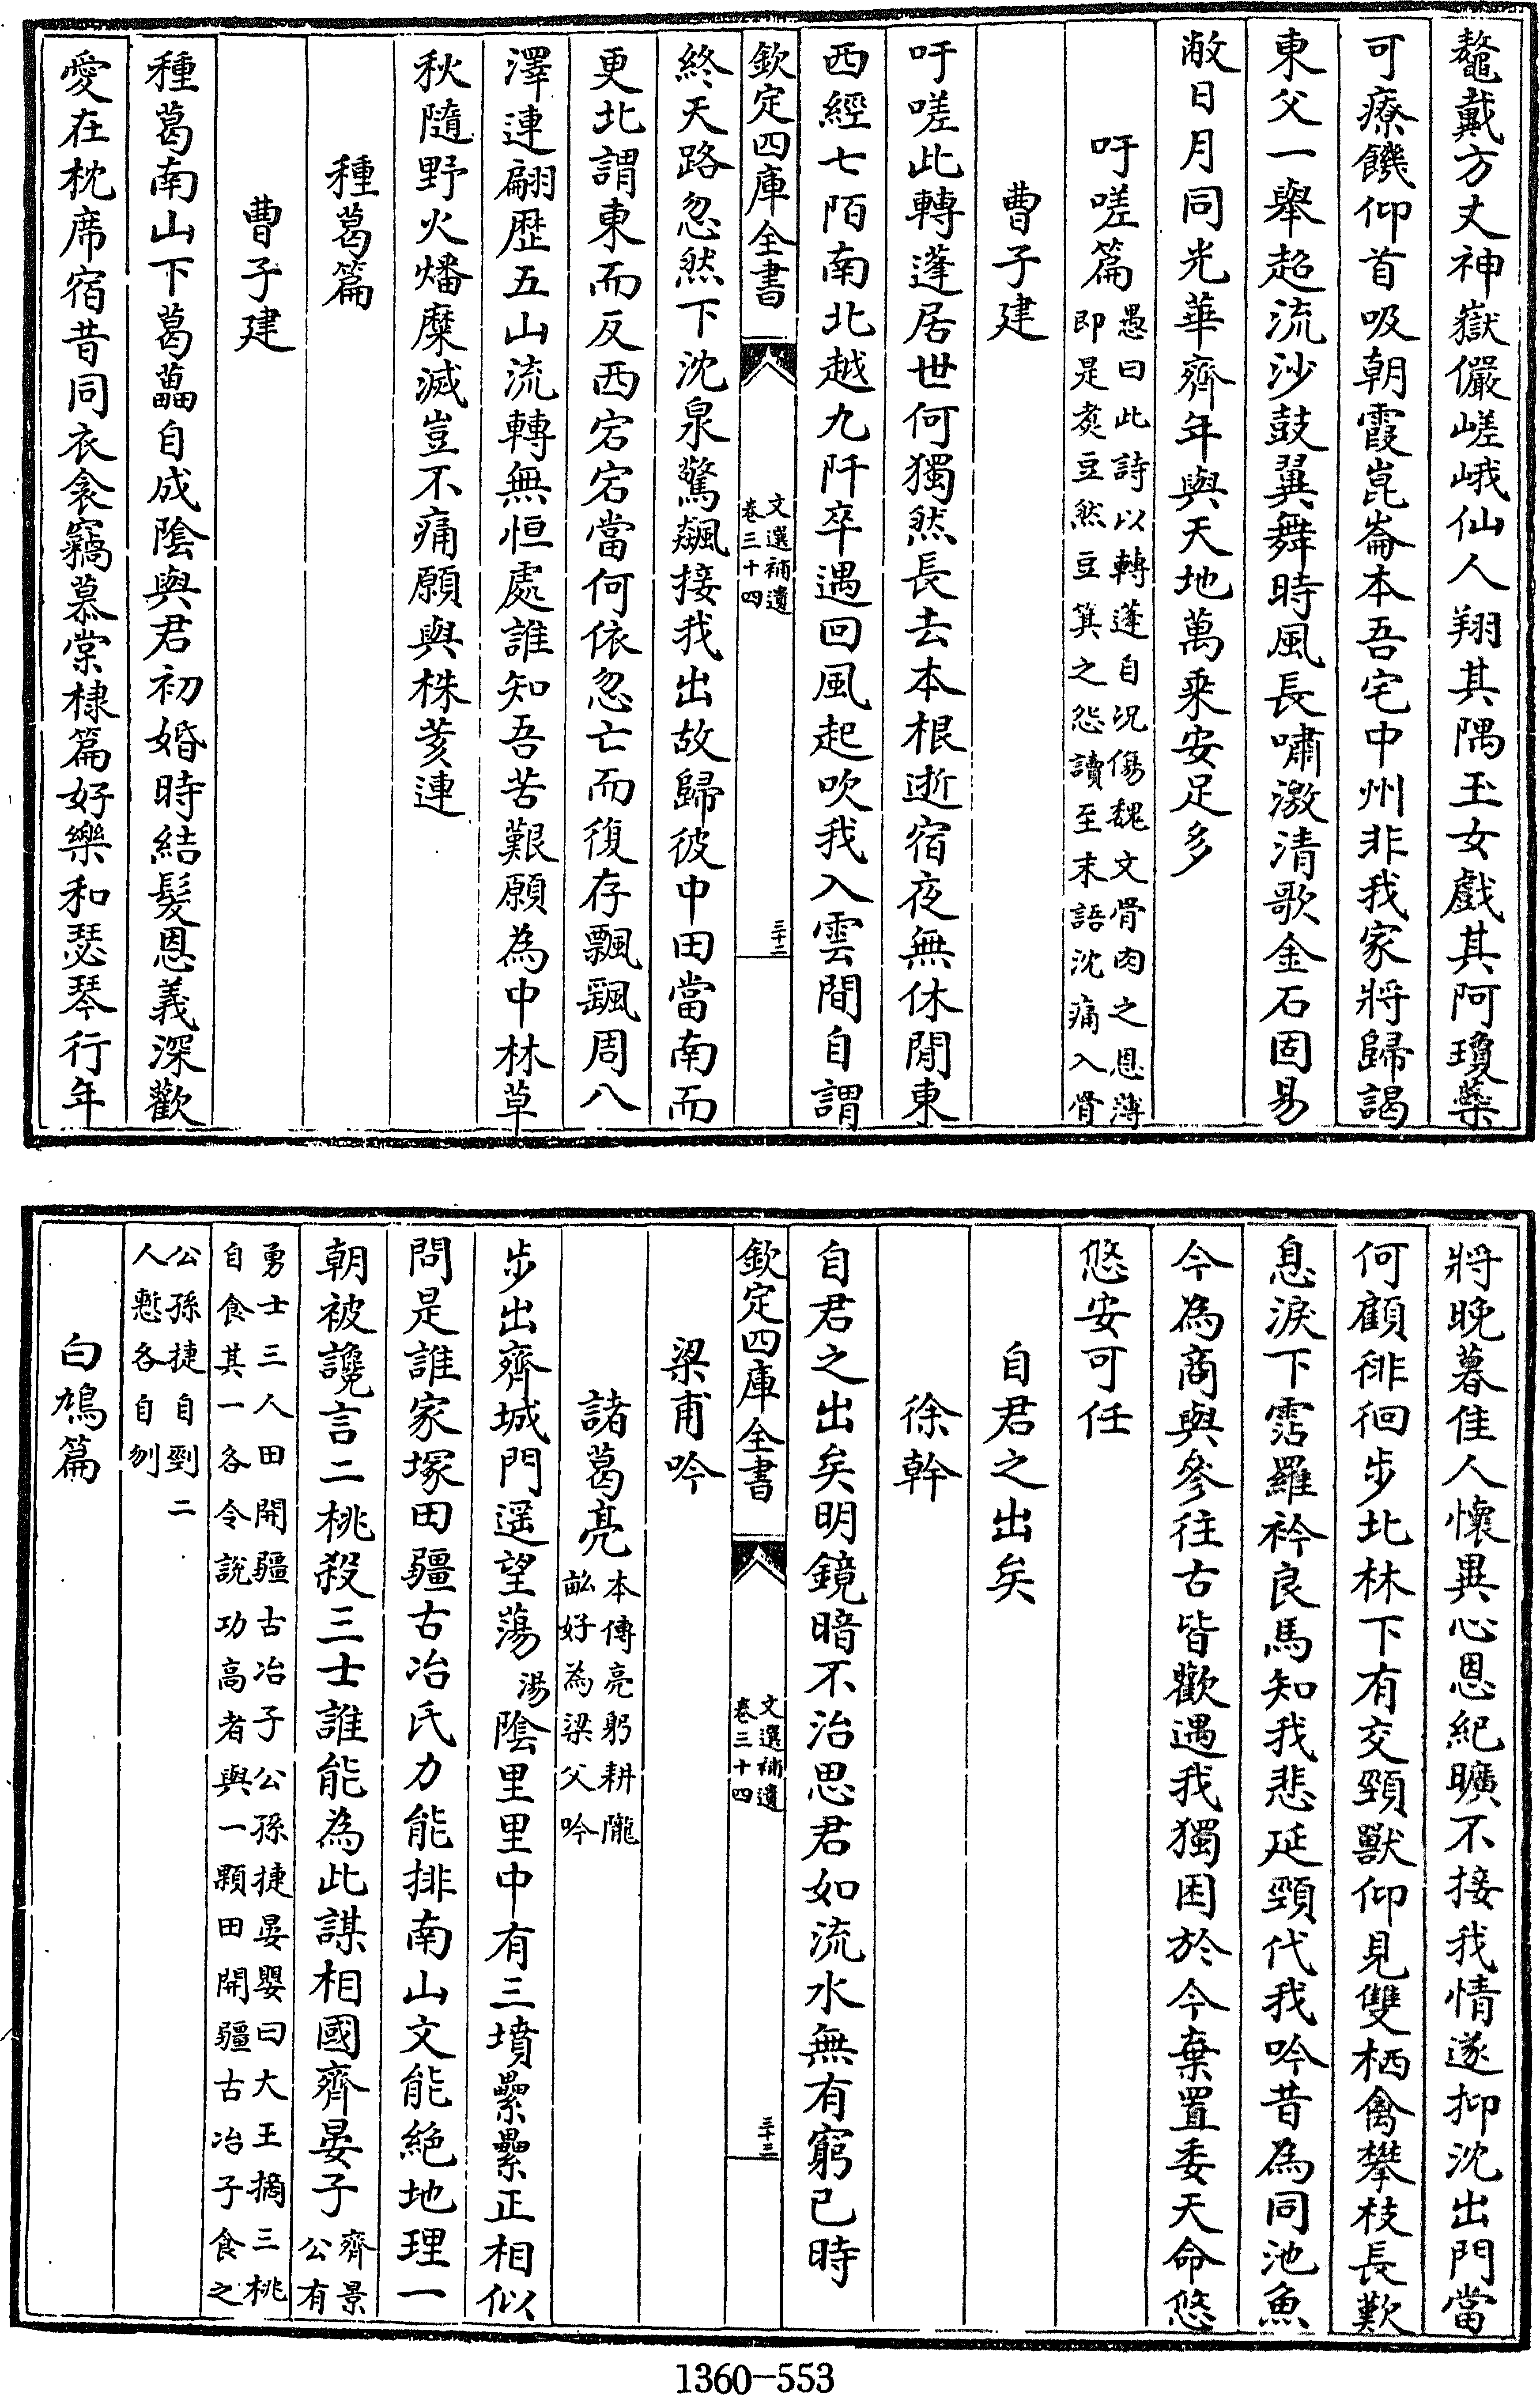 鼇戴方丈神嶽儼嵯峨仙人翔其隅玉女戲其阿瓊蘂
可療饑仰首吸朝霞崑崙本吾宅中州非我家將歸謁
東父一舉超流沙鼓翼舞時風長嘯激清歌金石固易
敝日月同光華齊年與天地萬乘安足多
吁嗟篇
愚曰此詩以轉蓬自況傷魏文骨肉之恩薄
即是煑豆然豆箕之怨讀至末語沈痛入骨
曹子建
吁嗟此轉蓬居世何獨然長去本根逝宿夜無休閒東
西經七陌南北越九阡卒遇回風起吹我入雲間自謂
欽定四庫全書
文選補遺
卷三十四
三十二
終天路忽然下沈泉驚飊接我出故歸彼中田當南而
更北謂東而反西宕宕當何依忽亡而復存飄飄周八
澤連翩歷五山流轉無恒處誰知吾苦艱願為中林草
秋隨野火燔糜滅豈不痛願與株荄連
種葛篇
曹子建
種葛南山下葛藟自成陰與君初婚時結髮恩義深歡
愛在枕席宿昔同衣衾竊慕棠棣篇好樂和瑟琴行年
將晚暮佳人懷異心恩紀曠不接我情遂抑沈出門當
何顧徘徊步北林下有交頸獸仰見雙栖禽攀枝長歎
息淚下霑羅衿良馬知我悲延頸代我吟昔為同池魚
今為商與參往古皆歡遇我獨困於今棄置委天命悠
悠安可任
自君之出矣
徐幹
自君之出矣明鏡暗不治思君如流水無有窮已時
欽定四庫全書
文選補遺
卷三十四
三十三
梁甫吟
諸葛亮
本傳亮躬耕隴
畝好為梁父吟
步出齊城門遥望蕩
湯
陰里里中有三墳纍纍正相似
問是誰家塚田疆古冶氏力能排南山文能絶地理一
朝被讒言二桃殺三士誰能為此謀相國齊晏子
齊景
公有
勇士三人田開疆古冶子公孫捷晏嬰曰大王摘三桃
自食其一各令說功高者與一顆田開疆古冶子食之
公孫捷自剄二
人慙各自刎
白鳩篇
1360-553